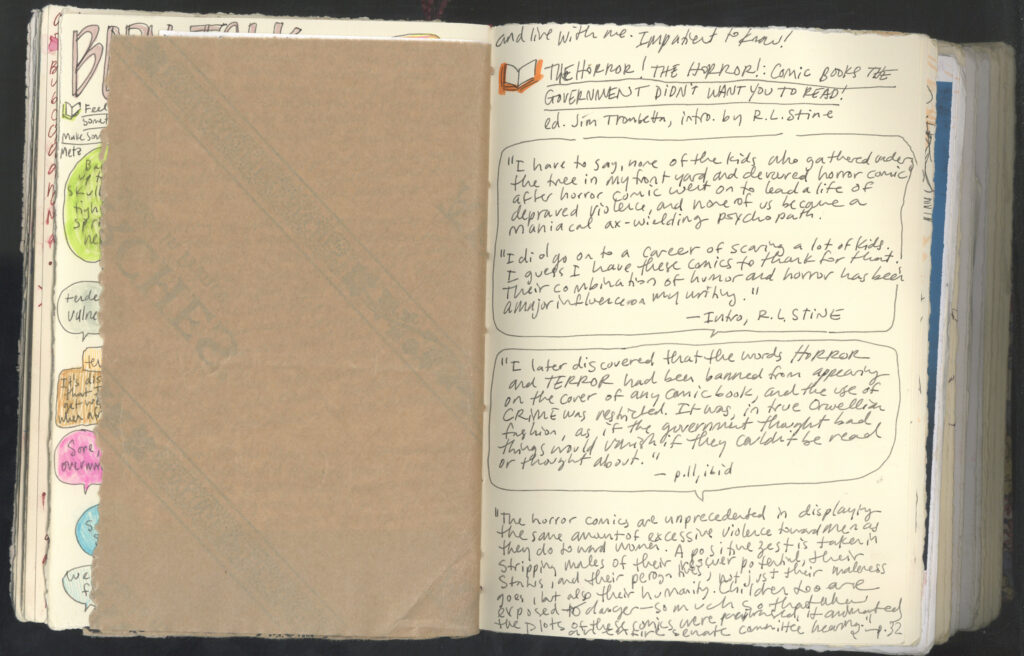 BABY TALK
Feel
Make Som
Meta
Ba
up t
skull
tigh
spri
ne
tende
vulne
te
It's dis
that
get we
when a
Sore,
overwh
S
we
f
CHES
and live with me. Impatient to know!
THE HORROR! THE HORROR!: COMIC BOOKS THE
GOVERNMENT DIDN'T WANT YOU TO READ!
ed. Jim Trombetta, intro. by R.L. Stine
"I have to say, none of the kids who gathered under
the tree in my front yard and devoured horror comic
after horror comic went on to lead a life of
depraved violence, and none of us became a
maniacal ax-wielding psychopath.
"I did go on to a career of scaring a lot of kids.
I guess I have these comics to thank for that.
Their combination of humor and horror has been
a major influence on my writing."
— Intro, R.L. STINE
"I later discovered that the words HORROR
and TERROR had been banned from appearing
on the cover of any comic book, and the use of
CRIME was restricted. It was, in true Orwellian
fashion, as if the government thought bad
things would vanish if they couldn't be read
or thought about."
— p.11, ibid
"The horror comics are unprecedented in displaying
the same amount of excessive violence toward men as
they do toward women. A positive zest is taken in
stripping males of their power potential, their
status, and their perogatives; not just their maleness
goes, but also their humanity. Children too are
exposed to danger—so much so that when
the plots of these comics were it animated
an entire senate committee hearing." —p.32